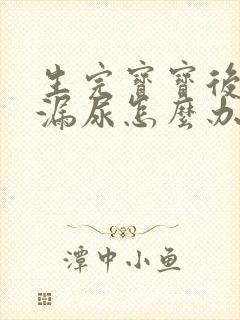 生完寶寶後
漏尿怎麼办
潭中小鱼